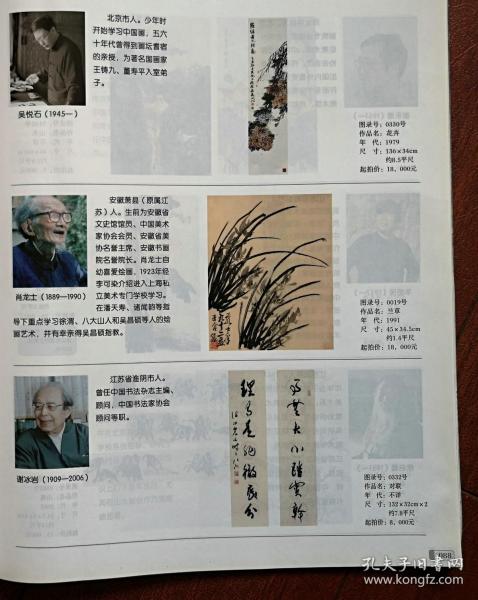 北京市人。少年时
开始学习中国画，五六
十年代曾得到画坛耆宿
的亲授，为著名国画家
王铸九、董寿平入室弟
子。
吴悦石（1945—）
图录号：0330号
作品名：花卉
年 代：1979
尺 寸：136×34cm
约8.5平尺
起拍价：18，000元
安徽萧县（原属江
苏）人。生前为安徽省
文史馆馆员、中国美术
家协会会员、安徽省美
协名誉主席、安徽书画
院名誉院长。肖龙士自
幼喜爱绘画，1923年经
李可染介绍进入上海私
立美术专门学校学习。
在潘天寿、诸闻韵等指
导下重点学习徐渭、八大山人和吴昌硕等人的绘
画艺术，并有幸亲得吴昌硕指教。
肖龙士（1889—1990）
图录号：0019号
作品名：兰草
年 代：1991
尺 寸：45×34.5cm
约1.4平尺
起拍价：18，000元
江苏省淮阴市人。
曾任中国书法杂志主编、
顾问，中国书法家协会
顾问等职。
谢冰岩（1909—2006）
图录号：0332号
作品名：对联
年 代：不详
尺 寸：132×32cm×2
约7.8平尺
起拍价：8，000元
088
孔夫子旧书网
www.kongfz.com